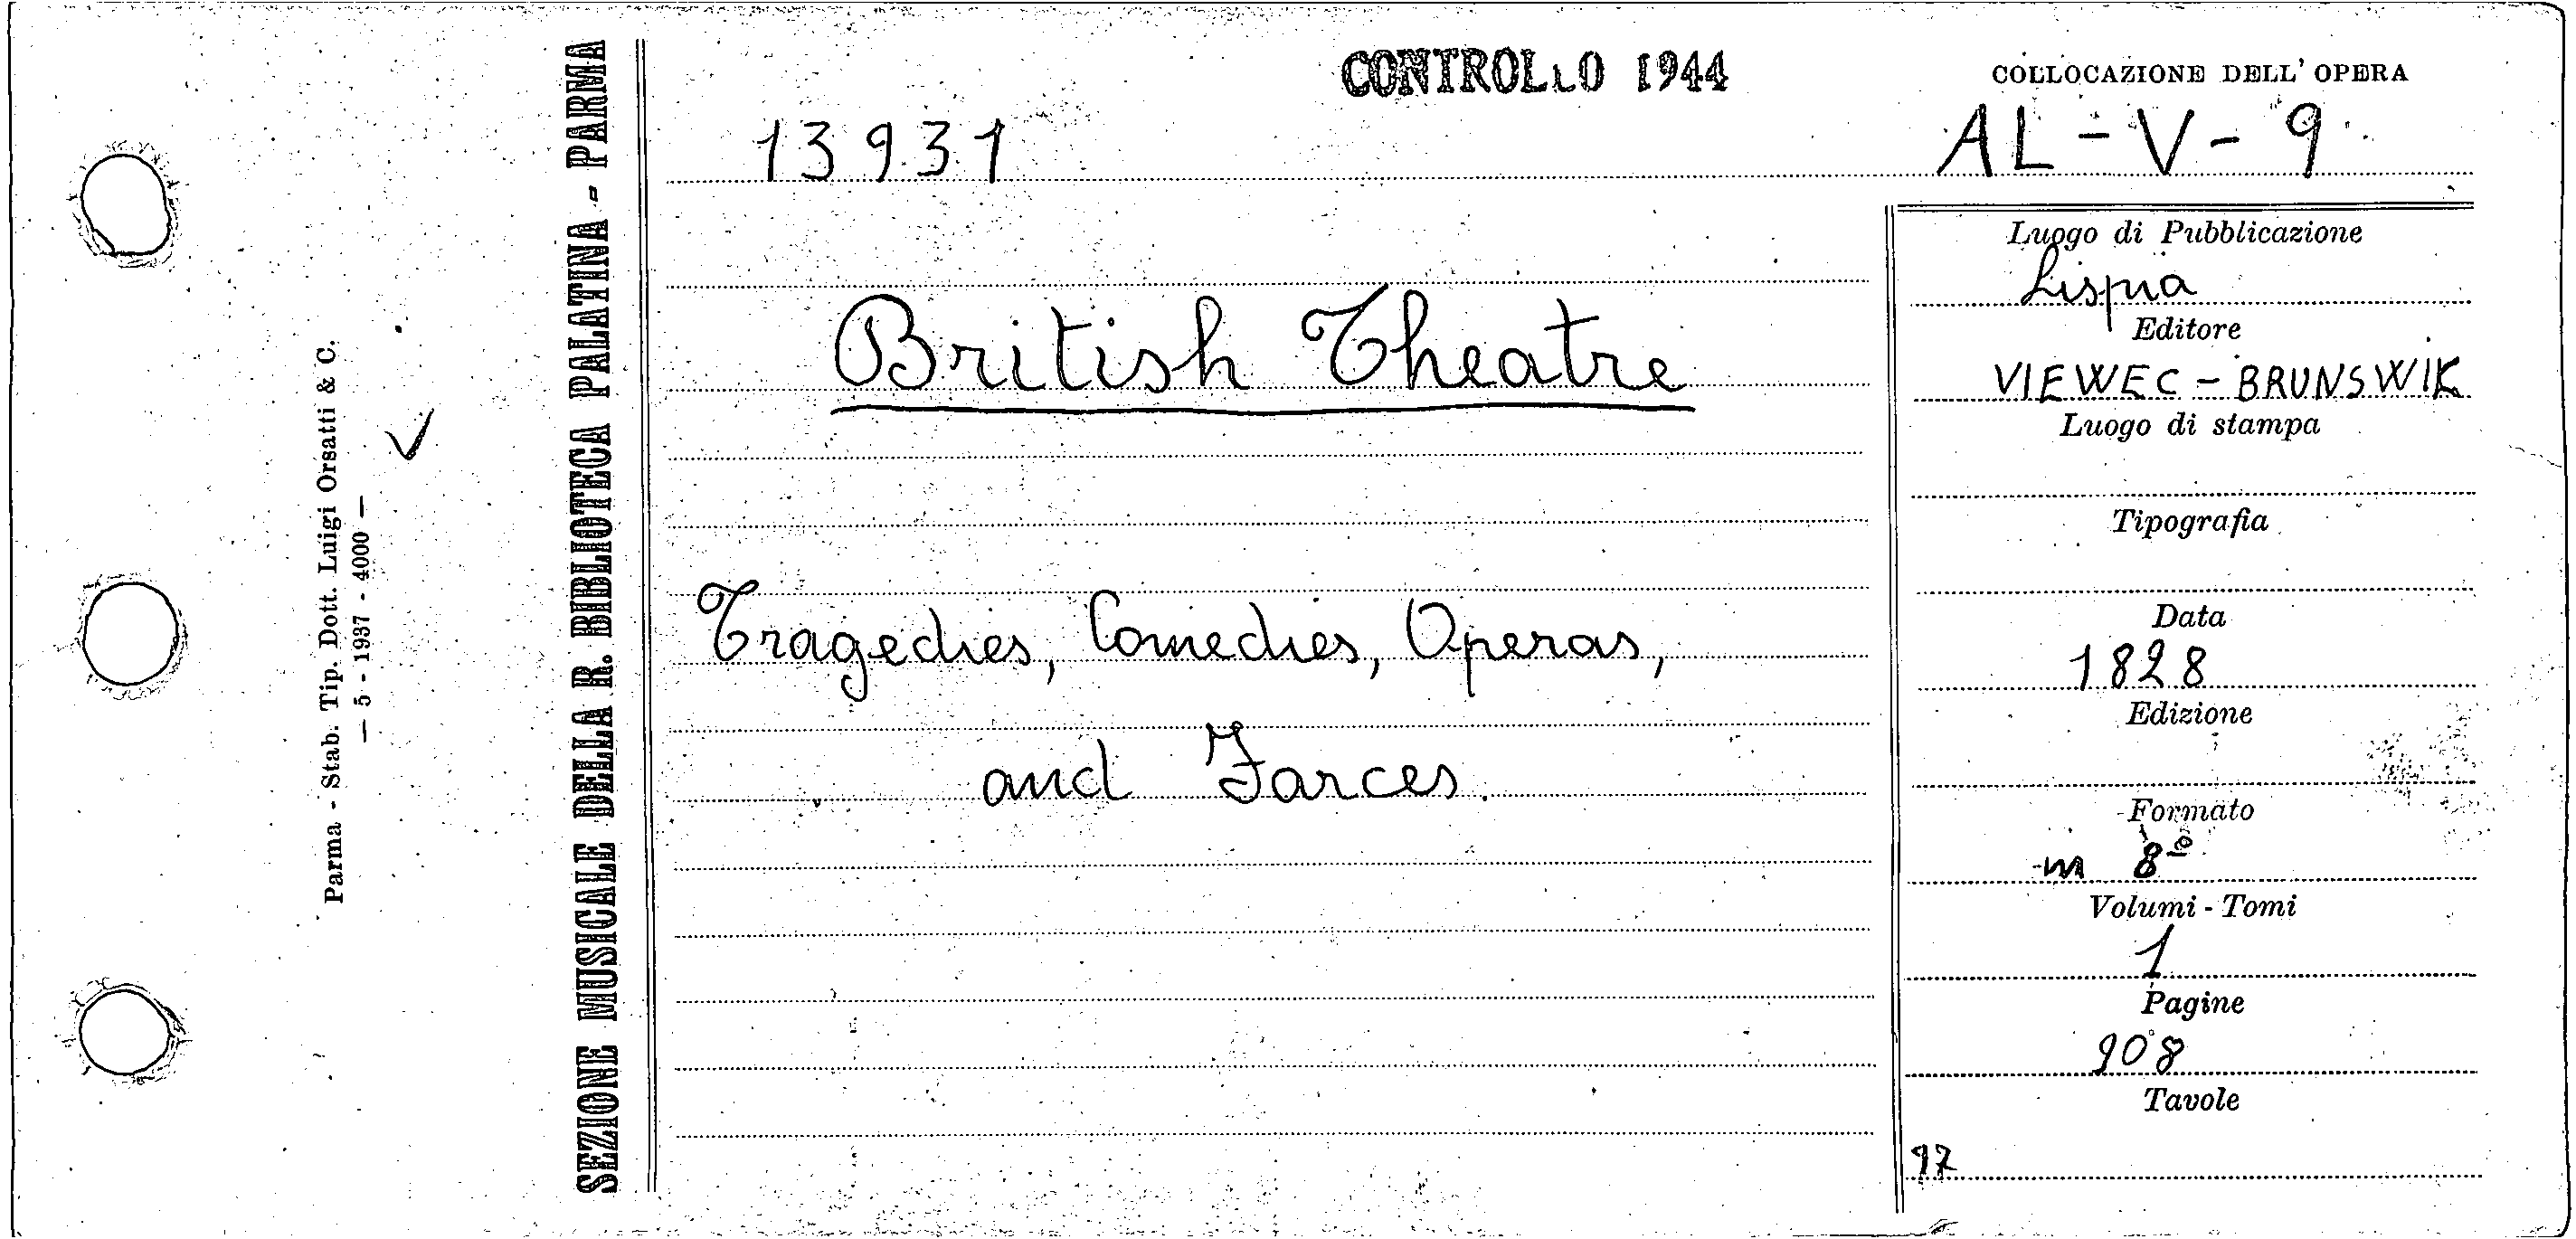 CONTROLLO 1944
COLLOCAZIONE DELL' OPERA
13931
AL - V - 9
British Theatre
Tragedies, Comedies, Operas,
and Farces.
Luogo di Pubblicazione
Lispia
Editore
VIEWEC - BRUNSWIK
Luogo di stampa
Tipografia
Data
1828
Edizione
Formato
in 8º
Volumi - Tomi
1
Pagine
908
Tavole
97
SEZIONE MUSICALE DELLA R. BIBLIOTECA PALATINA - PARMA
Parma - Stab. Tip. Dott. Luigi Orsatti & C.
— 5 - 1937 - 4000 —